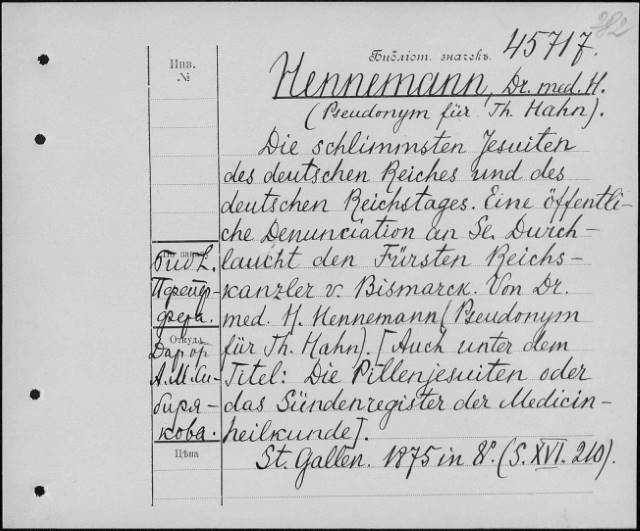 382
Библіот. значекъ 45717.
Инв.
№
Hennemann, Dr. med. H.
(Pseudonym für Th. Hahn).
Die schlimmsten Jesuiten
des deutschen Reiches und des
deutschen Reichstages. Eine öffentli-
che Denunciation an Se. Durch-
laucht den Fürsten Reichs-
kanzler v. Bismarck. Von Dr.
med. H. Hennemann (Pseudonym
für Th. Hahn). [Auch unter dem
Titel: Die Pillenjesuiten oder
das Sündenregister der Medicin-
heilkunde].
St. Gallen. 1875 in 8°. (S. XVI. 210).
Библ.
Пфейф-
фера.
Откуда
Дар от
А. М. Си-
биря-
кова.
Цѣна